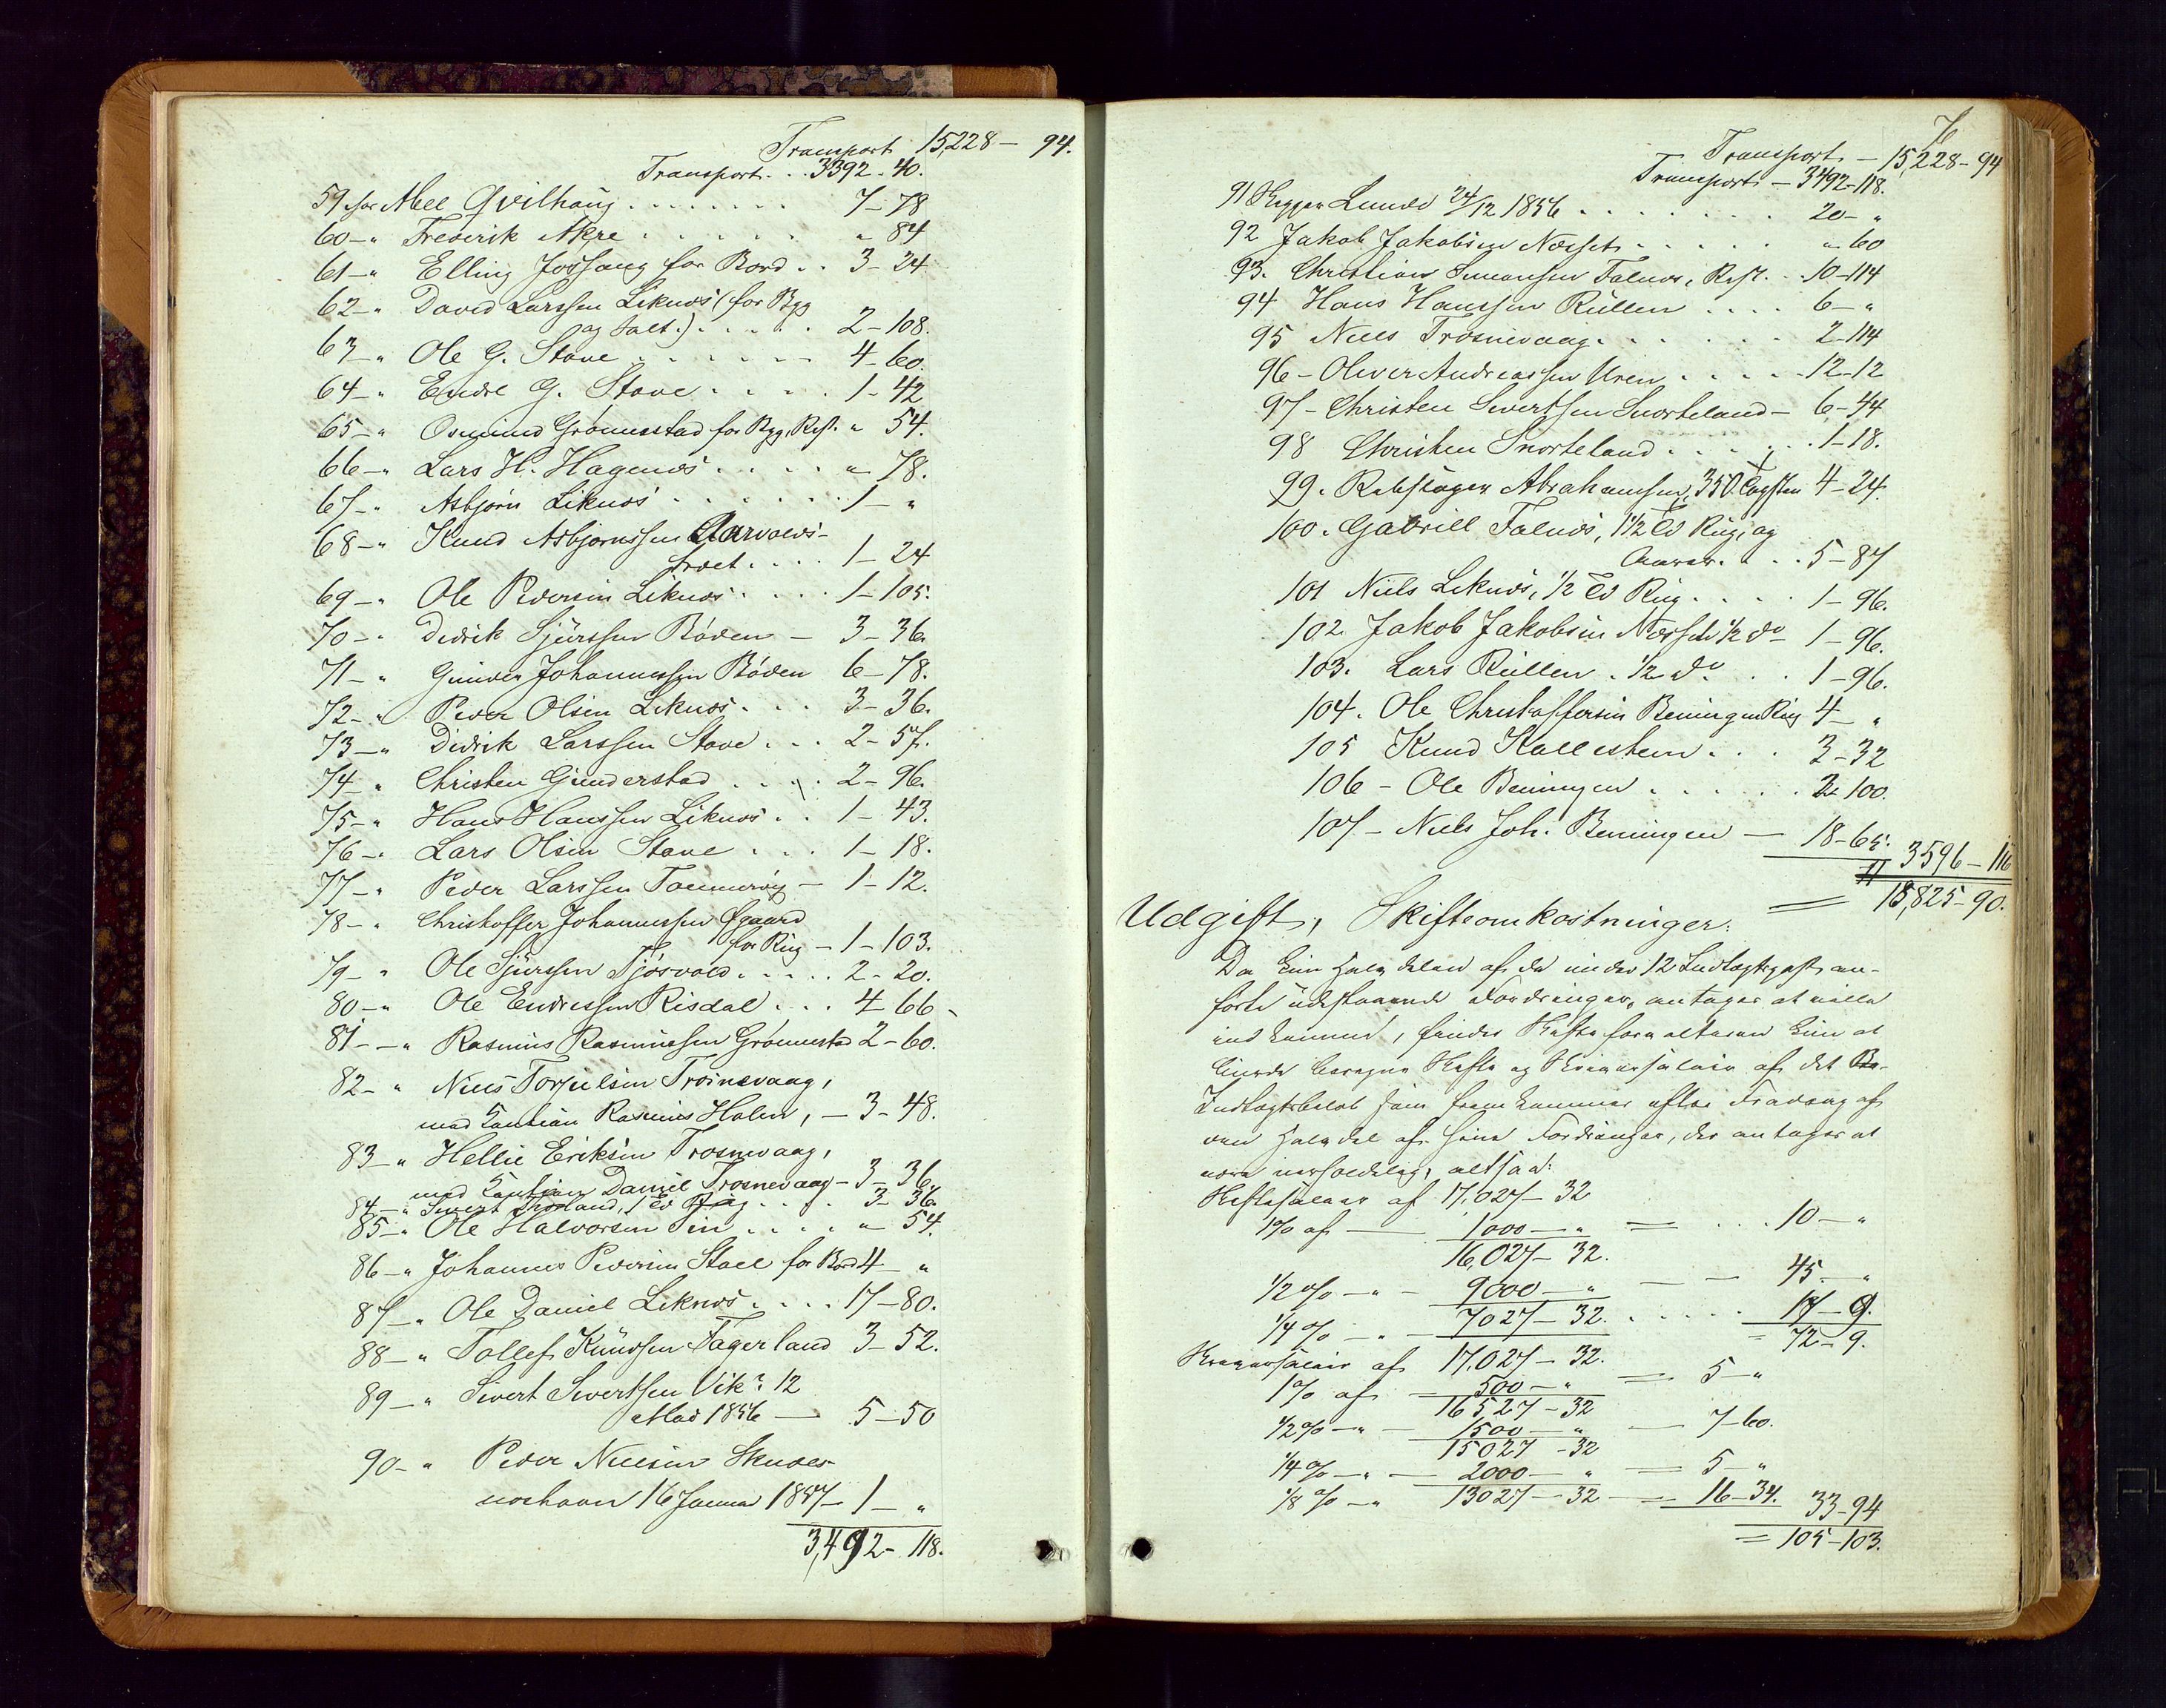 Transport 15,228 — 94.
Transport . . . 3392 - 40.
59 for Abel Qvilhaug . . . . . . . . 7 - 78
60 - " Frederik Akre . . . . . " 84
61 - " Elling Jossang for Bord . . 3 - 24
62 - " David Larssen Liknæs (for Byg
og Salt.) . . . . . 2 - 108.
63 - " Ole G. Stave . . . . . . 4 - 60.
64 - " Endre G. Stave . . . . 1 - 42
65 - " Osmund Grönnestad for Byg, Rest. " 54.
66 - " Lars H. Hagenæs . . . . " 78.
67 - " Asbjørn Liknæs . . . . . . 1 - "
68 - " Knud Asbjørnssen Aarvolds-
. . . . 1 - 24
69 - " Ole Pedersen Liknæs . . . . 1 - 105.
70 - " Didrik Sjürssen Böden — 3 - 36.
71 - " Gunder Johannessen Böden 6 - 78.
72 - " Peder Olsen Liknæs . . . 3 - 36.
73 - " Didrik Larssen Stave . . . 2 - 57.
74 - " Christen Gunderstad . . . . 2 - 96.
75 - " Hans Hanssen Liknæs . . 1 - 43.
76 - " Lars Olsen Stave . . . 1 - 18.
77 - " Peder Larssen — 1 - 12.
78 - " Christoffer Johannessen Øgaard
for Rug — 1 - 103.
79 - " Ole Sjürssen Tjösvold . . . . 2 - 20.
80 - " Ole Endressen Risdal . . . 4 - 66
81 - " Rasmus Rasmussen Grönnestad 2 - 60.
82 - " Niels Torjülsen Trosnevaag,
med Kaution Rasmus Holen, — 3 - 48.
83 - " Hellie Eriksen Trosnevaag,
med Kaution Daniel Trosnevaag - 3 - 36.
84 - " Sivert , 1 Td Rug . . . . 3 - 36.
85 - " Ole Halvorsen . . . . " 54.
86 - " Johannes Pedersen Stave for Bord 4 - "
87 - " Ole Daniel Liknæs . . . . 17 - 80.
88 - " Tollef Knüdsen Fagerland 3 - 52.
89 - " Sivert Sivertsen Vik: 12
Mai 1856 — 5 - 50
90 - " Peder Nielsen Skudes-
neshavn 16 Januar 1857 - 1 - "
3,492 - 118.
76
Transport — 15,228 - 94
Transport — 3492 - 118.
91 Lunde 24/12 1856 . . . . . . . 20 - "
92 Jakob Jakobsen Næsset . . . . . " 60
93. Christian Simonsen Falnæs, Rest. . . 10 - 114
94 Hans Hanssen Rüllen . . . . 6 - "
95 Niels Trosnevaag . . . . . . 2 - 114
96 - Oliver Andreassen Uren . . . . 12 - 12
97 - Christen Sivertsen Snorteland — 6 - 44
98 Christen Snorteland . . . . . . 1 - 18.
99. Rebslager Abrahamsen, 350 4 - 24.
100. Gabriell Falnæs, 1 1/2 Td Rug, og
. . . 5 - 87
101 Niels Liknæs, 1/2 Td Rug . . . . 1 - 96.
102. Jakob Jakobsen Næsset 1/2 do 1 - 96.
103. Lars Rüllen . 1/2 do . . . 1 - 96.
104. Ole Christoffersen Beiningen Rug 4 - "
105 Knud Kallestein . . . 3 - 32
106 - Ole Beiningen . . . . . . 2 - 100.
107 - Niels Joh: Beiningen — 18 - 65.
3596 - 116
18,825 - 90.
Udgift, Skifteomkostninger:
Da kun Halvdelen af de under 12 Indtægtspost an-
førte udestaaende Fordringer, antages at ville
indkomme, finder Skifteforvalteren kun at
burde beregne Skifte og af det
Indtægtsbeløb som fremkommer efter Fradrag af
den Halvdel af hine Fordringer, der antages at
være uerholdelig, altsaa:
Skiftesalair af 17,027 - 32
1% af — 1000 - " = . . . 10 - "
16,027 - 32.
1/2 % - " - 9000 - " — — 45 - "
1/4 % - " - 7027 - 32. . . . . . 17 - 9.
= 72 - 9.
af 17,027 - 32.
1% af = 500 - " = 5 - "
16527 - 32
1/2 % - " - 1500 - " — 7 - 60.
15027 - 32
1/4 % - " - 2000 - " = 5 - "
1/8 % - " 13027 - 32 = 16 - 34. 33 - 94
= 105 - 103.